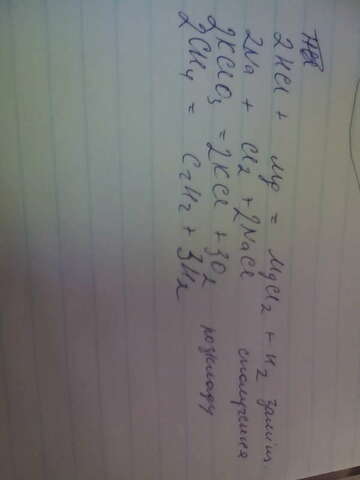 2HCl + Mg = MgCl2 + H2 заміни
2Na + Cl2 + 2NaCl сполучення
2KClO3 = 2KCl + 3O2 розкладу
2CH4 = C2H2 + 3H2